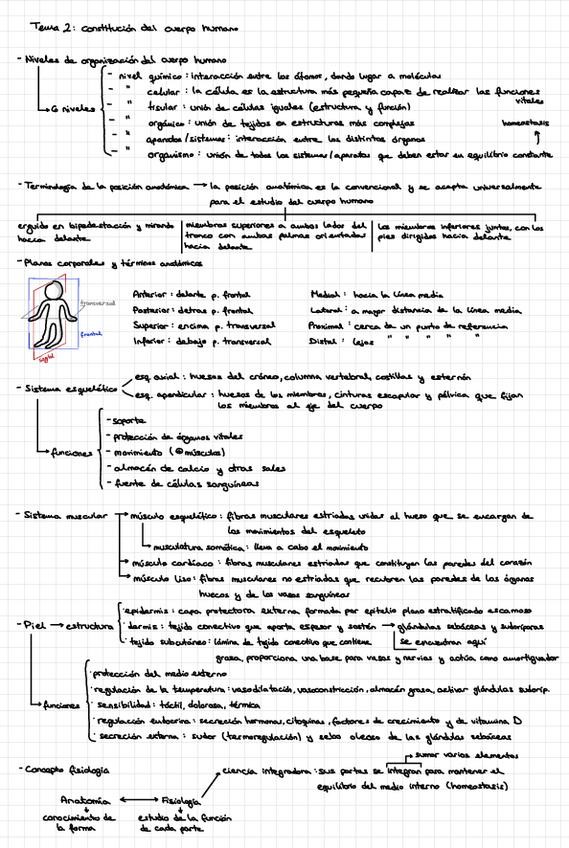 Tema 2: constitución del cuerpo humano
- Niveles de organización del cuerpo humano
6 niveles
- nivel químico: interacción entre los átomos, dando lugar a moléculas
- " celular: la célula es la estructura más pequeña capaz de realizar las funciones vitales
- " tisular: unión de células iguales (estructura y función)
- " orgánico: unión de tejidos en estructuras más complejas
- " aparatos/sistemas: interacción entre los distintos órganos
- " organismo: unión de todos los sistemas/aparatos que deben estar en equilibrio constante
homeostasis
- Terminología de la posición anatómica → la posición anatómica es la convencional y se acepta universalmente
para el estudio del cuerpo humano
erguido en bipedestación y mirando
hacia delante
miembros superiores a ambos lados del
tronco con ambas palmas orientadas
hacia delante
los miembros inferiores juntos, con los
pies dirigidos hacia delante
- Planos corporales y términos anatómicos
transversal
frontal
sagital
Anterior: delante p. frontal
Posterior: detras p. frontal
Superior: encima p. transversal
Inferior: debajo p. transversal
Medial: hacia la línea media
Lateral: a mayor distancia de la línea media
Proximal: cerca de un punto de referencia
Distal: lejos " " " " "
- Sistema esquelético
esq. axial: huesos del cráneo, columna vertebral, costillas y esternón
esq. apendicular: huesos de los miembros, cinturas escapular y pélvica que fijan
los miembros al eje del cuerpo
funciones
- soporte
- protección de órganos vitales
- movimiento (⊕músculos)
- almacén de calcio y otras sales
- fuente de células sanguíneas
- Sistema muscular
músculo esquelético: fibras musculares estriadas unidas al hueso que se encargan de
los movimientos del esqueleto
musculatura somática: lleva a cabo el movimiento
músculo cardíaco: fibras musculares estriadas que constituyen las paredes del corazón
músculo liso: fibras musculares no estriadas que recubren las paredes de los órganos
huecos y de los vasos sanguíneos
- Piel → estructura
· epidermis: capa protectora externa formada por epitelio plano estratificado escamoso
· dermis: tejido conectivo que aporta espesor y sostén → glándulas sebáceas y sudoríporas
se encuentran aquí
· tejido subcutáneo: lámina de tejido conectivo que contiene
grasa, proporciona una base para vasos y nervios y actúa como amortiguador
funciones
· protección del medio externo
· regulación de la temperatura: vasodilatación, vasoconstricción, almacén grasa, activar glándulas sudoríp.
· sensibilidad: táctil, dolorosa, térmica
· regulación endocrina: secreción hormonas, citoquinas, factores de crecimiento y de vitamina D
· secreción externa: sudor (termoregulación) y sebo oleoso de las glándulas sebáceas
- Concepto fisiología
sumar varios elementos
ciencia integradora: sus partes se integran para mantener el
equilibrio del medio interno (homeostasis)
Anatomía ↔ Fisiología
conocimiento de
la forma
estudio de la función
de cada parte